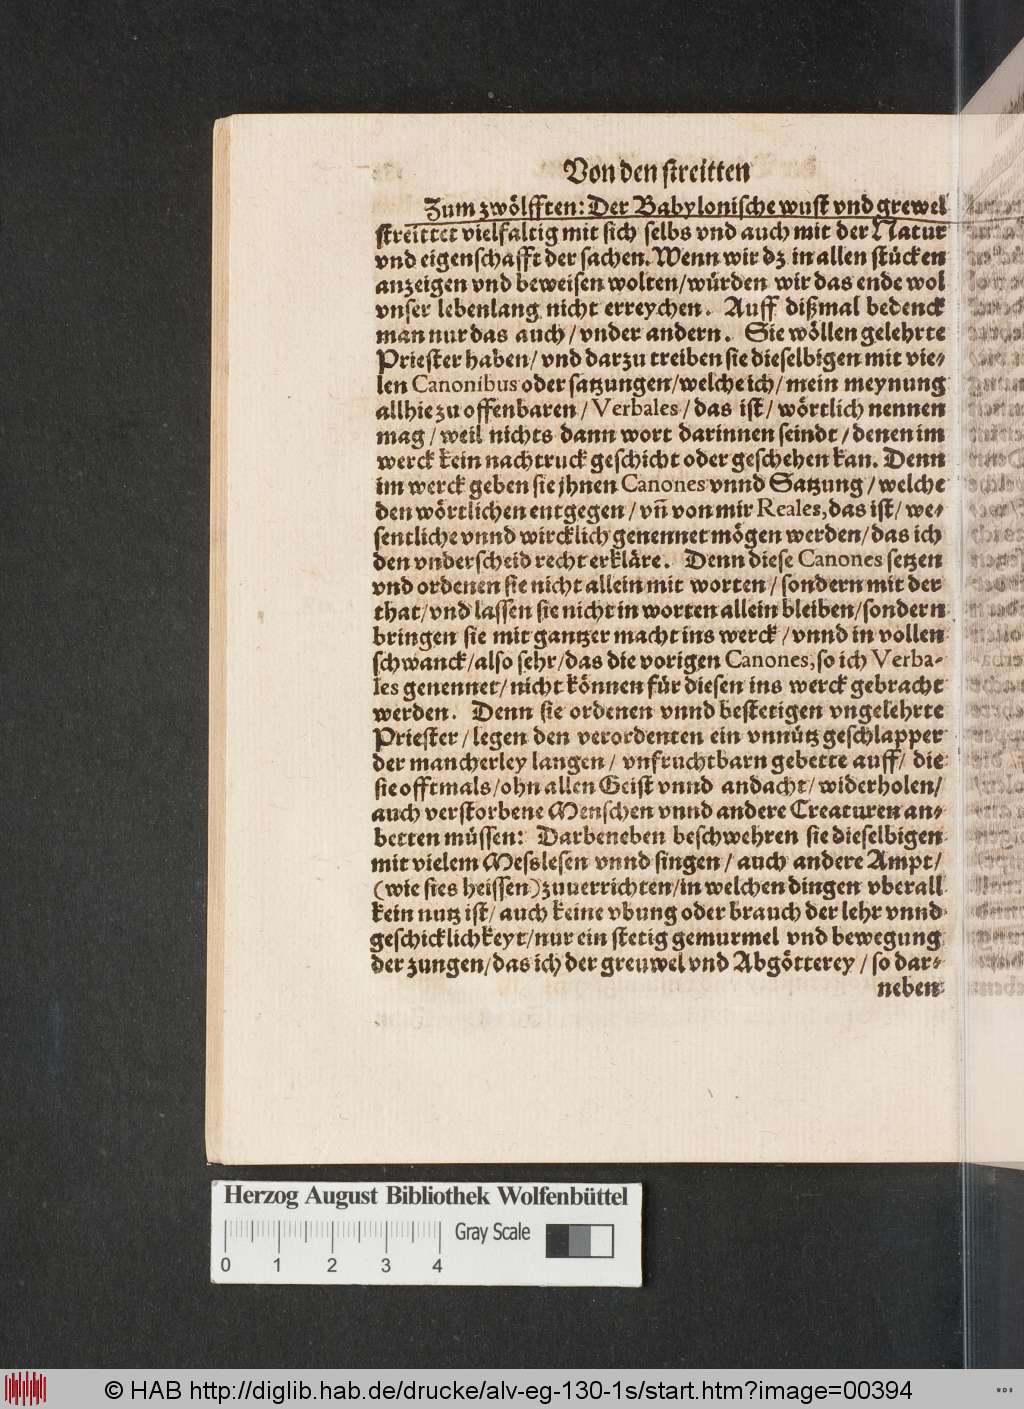 Von den streitten
Zum zwölfften: Der Babylonische wust vnd grewel
streittet vielfaltig mit sich selbs vnd auch mit der Natur
vnd eigenschafft der sachen. Wenn wir dz in allen stücken
anzeigen vnd beweisen wolten/ würden wir das ende wol
vnser lebenlang nicht erreychen. Auff dißmal bedenck
man nur das auch/ vnder andern. Sie wöllen gelehrte
Priester haben/ vnd darzu treiben sie dieselbigen mit vie-
len Canonibus oder satzungen/ welche ich/ mein meynung
allhie zu offenbaren/ Verbales/ das ist/ wörtlich nennen
mag/ weil nichts dann wort darinnen seindt/ denen im
werck kein nachtruck geschicht oder geschehen kan. Denn
im werck geben sie jhnen Canones vnnd Satzung/ welche
den wörtlichen entgegen/ vñ von mir Reales, das ist/ we-
sentliche vnnd wircklich genennet mögen werden/ das ich
den vnderscheid recht erkläre. Denn diese Canones setzen
vnd ordenen sie nicht allein mit worten/ sondern mit der
that/ vnd lassen sie nicht in worten allein bleiben/ sondern
bringen sie mit gantzer macht ins werck/ vnnd in vollen
schwanck/ also sehr/ das die vorigen Canones, so ich Verba-
les genennet/ nicht können für diesen ins werck gebracht
werden. Denn sie ordenen vnnd bestetigen vngelehrte
Priester/ legen den verordenten ein vnnütz geschlapper
der mancherley langen/ vnfruchtbarn gebette auff/ die
sie offtmals/ ohn allen Geist vnnd andacht/ widerholen/
auch verstorbene Menschen vnnd andere Creaturen an-
betten müssen: Darbeneben beschwehren sie dieselbigen
mit vielem Messlesen vnnd singen/ auch andere Ampt/
(wie sies heissen) zuuerrichten/ in welchen dingen vberall
kein nutz ist/ auch keine vbung oder brauch der lehr vnnd
geschicklichkeyt/ nur ein stetig gemurmel vnd bewegung
der zungen/ das ich der greuwel vnd Abgötterey/ so dar-
neben
Herzog August Bibliothek Wolfenbüttel
Gray Scale
0 1 2 3 4
© HAB http://diglib.hab.de/drucke/alv-eg-130-1s/start.htm?image=00394